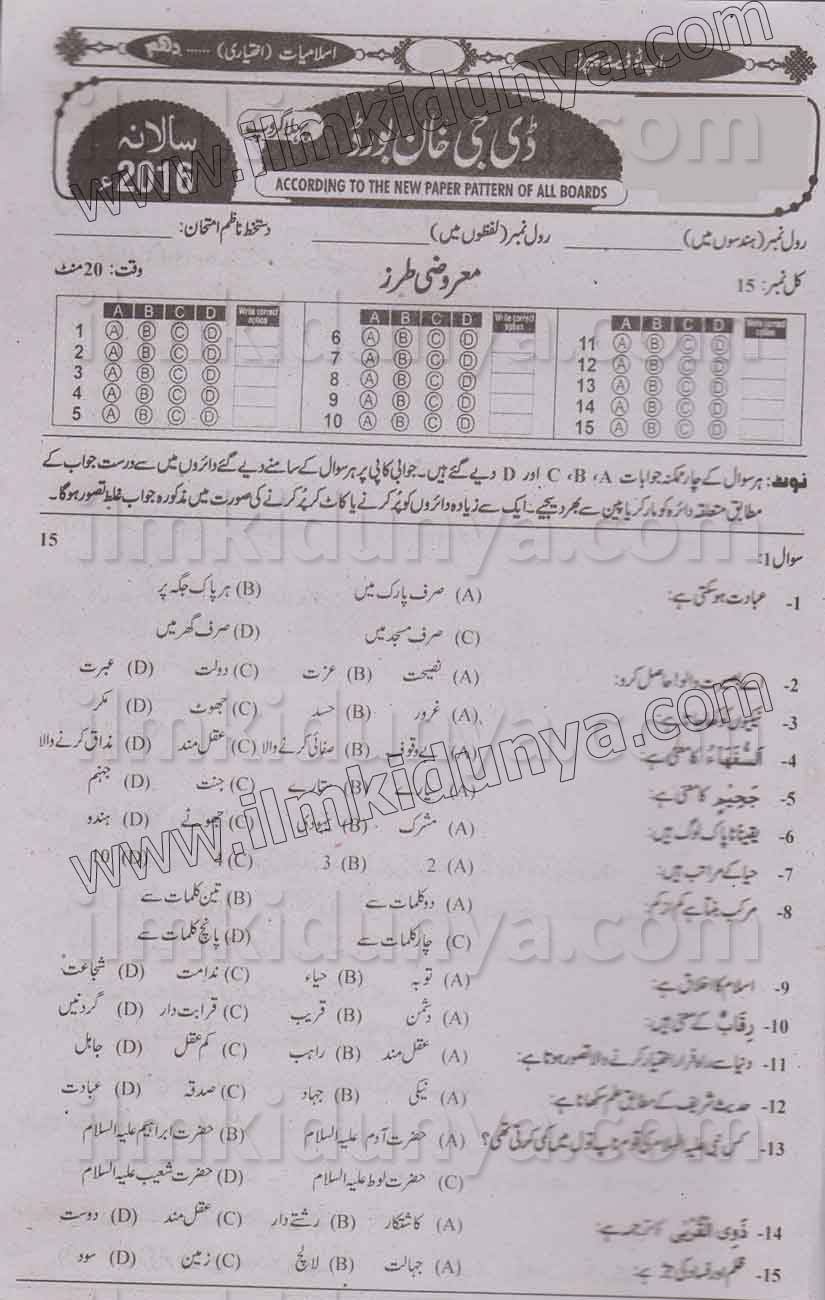 اسلامیات (اختیاری) ..... دہم
سالانہ
2016ء
ڈی جی خان بورڈ
ACCORDING TO THE NEW PAPER PATTERN OF ALL BOARDS
رول نمبر (ہندسوں میں) ____________ رول نمبر (لفظوں میں) ____________ دستخط ناظم امتحان: ____________
کل نمبر: 15 معروضی طرز وقت: 20 منٹ
A B C D Write correct option A B C D Write correct option A B C D Write correct option
1 A B C D 6 A B C D 11 A B C D
2 A B C D 7 A B C D 12 A B C D
3 A B C D 8 A B C D 13 A B C D
4 A B C D 9 A B C D 14 A B C D
5 A B C D 10 A B C D 15 A B C D
نوٹ: ہر سوال کے چار ممکنہ جوابات A، B، C اور D دیے گئے ہیں۔ جوابی کاپی پر ہر سوال کے سامنے دیے گئے دائروں میں سے درست جواب کے
مطابق متعلقہ دائرہ کو مارکر یا پین سے بھر دیجیے۔ ایک سے زیادہ دائروں کو پُر کرنے یا کاٹ کر پُر کرنے کی صورت میں مذکورہ جواب غلط تصور ہوگا۔
سوال 1: 15
1- عبادت ہو سکتی ہے: (A) صرف پارک میں (B) ہر پاک جگہ پر
(C) صرف مسجد میں (D) صرف گھر میں
2- حاصل کرو: (A) نصیحت (B) عزت (C) دولت (D) عبرت
3- نیکیوں کو ہے: (A) غرور (B) حسد (C) جھوٹ (D) مکر
4- اَلسُّفَهَآءُ کا معنی ہے: (A) بے وقوف (B) صفائی کرنے والا (C) عقل مند (D) مذاق کرنے والا
5- جَحِيْمِ کا معنی ہے: (A) (B) ستارے (C) جنت (D) جہنم
6- یقیناً ناپاک لوگ ہیں: (A) مشرک (B) یہودی (C) جھوٹے (D) ہندو
7- حیا کے مراتب ہیں: (A) 2 (B) 3 (C) 4 (D) 10
8- مرکب بنتا ہے کم از کم: (A) دو کلمات سے (B) تین کلمات سے
(C) چار کلمات سے (D) پانچ کلمات سے
9- اسلام کا اخلاق ہے: (A) توبہ (B) حیاء (C) ندامت (D) شجاعت
10- رِقَابٌ کے معنی ہیں: (A) دشمن (B) قریب (C) قرابت دار (D) گردنیں
11- دنیا سے راہ فرار اختیار کرنے والا تصور ہوتا ہے: (A) عقل مند (B) راہب (C) کم عقل (D) جاہل
12- حدیث شریف کے مطابق علم سکھانا ہے: (A) نیکی (B) جہاد (C) صدقہ (D) عبادت
13- کس نبی علیہ السلام کی قوم ناپ تول میں کمی کرتی تھی؟ (A) حضرت آدم علیہ السلام (B) حضرت ابراہیم علیہ السلام
(C) حضرت لوط علیہ السلام (D) حضرت شعیب علیہ السلام
14- ذَوِی الْقُرْبٰی کا ترجمہ ہے: (A) کاشتکار (B) رشتے دار (C) عقل مند (D) دوست
15- ظلم اور فساد کی جڑ ہے: (A) جہالت (B) لالچ (C) زمین (D) سود
www.ilmkidunya.com
www.ilmkidunya.com
ilmkidunya.com
ilmkidunya.com
ilmkidunya.com
ilmkidunya.com
ilmkidunya.com
ilmkidunya.com